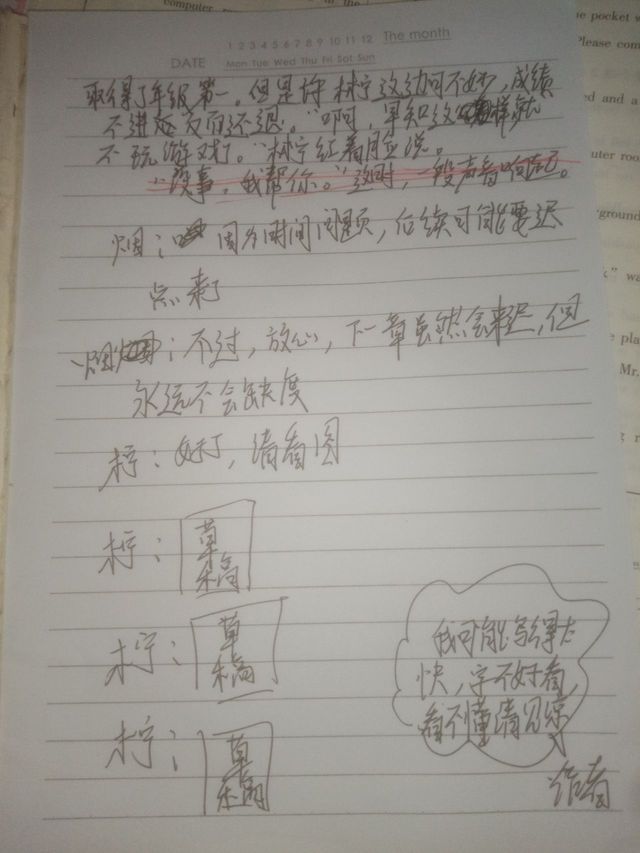 computer ro
1 2 3 4 5 6 7 8 9 10 11 12 The month
DATE Mon Tue Wed Thu Fri Sat Sun
取得了年级第一。但是许柠这边可不妙，成绩
不进反而还退。“啊，早知这样就
不玩游戏了。”柠红着眼说。
“没事，我帮你。”这时，一段声音响起。
烟：因为时间问题，后续可能要迟
点来了
烟：不过，放心，下一章虽然会来迟，但
永远不会缺席
柠：好了，请看图
柠：草稿
柠：草稿
柠：草稿
我可能写得太
快，字不好看，
看不懂请见谅
作者
he pocket w
lease com
ed and a
uter roo
ground
k” wa
e pla
Mr.